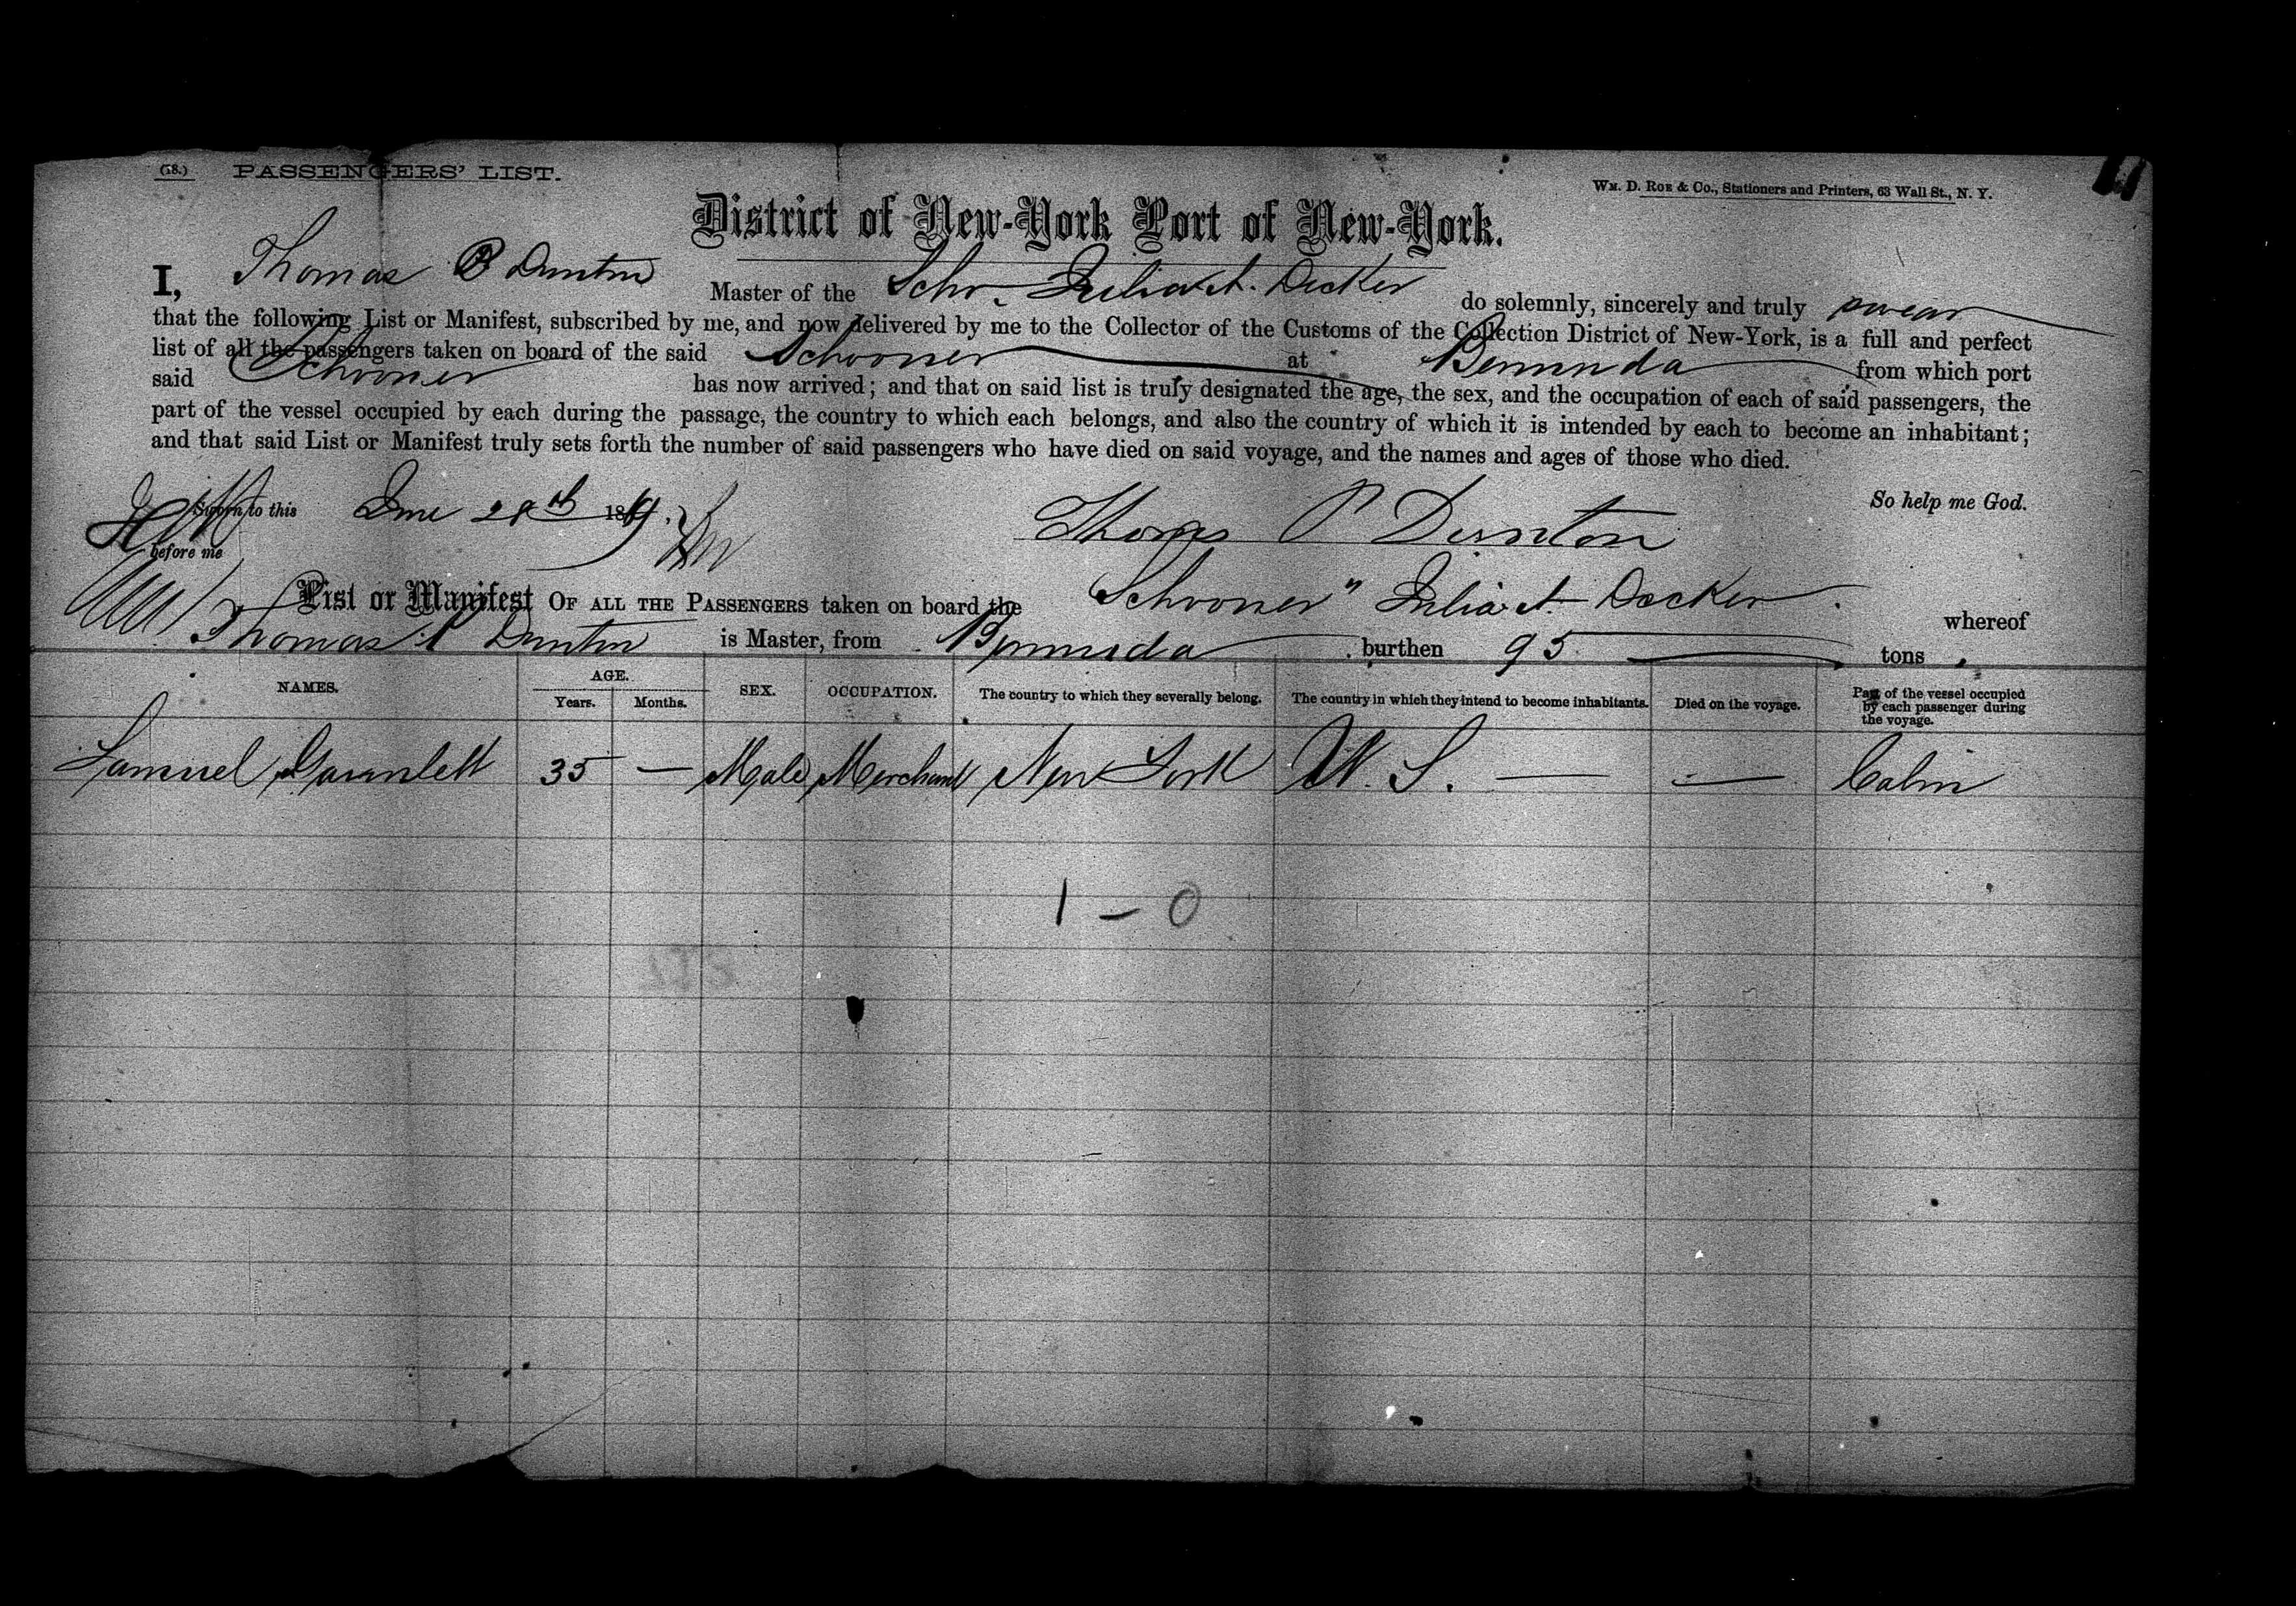 (18.) PASSENGERS' LIST.
WM. D. ROE & CO., Stationers and Printers, 63 Wall St., N. Y.
District of New-York Port of New-York.
I, Thomas P Dunton Master of the Schr. Julia A. Decker do solemnly, sincerely and truly swear
that the following List or Manifest, subscribed by me, and now delivered by me to the Collector of the Customs of the Collection District of New-York, is a full and perfect
list of all the passengers taken on board of the said Schooner at Bermuda from which port
said Schooner has now arrived; and that on said list is truly designated the age, the sex, and the occupation of each of said passengers, the
part of the vessel occupied by each during the passage, the country to which each belongs, and also the country of which it is intended by each to become an inhabitant;
and that said List or Manifest truly sets forth the number of said passengers who have died on said voyage, and the names and ages of those who died.
So help me God.
Sworn to this June 28th 18 Thomas P Dunton
before me
List or Manifest OF ALL THE PASSENGERS taken on board the Schooner "Julia A. Decker whereof
Thomas P Dunton is Master, from Bermuda burthen 95 tons
NAMES. AGE. Years. Months. SEX. OCCUPATION. The country to which they severally belong. The country in which they intend to become inhabitants. Died on the voyage. Part of the vessel occupied by each passenger during the voyage.
Samuel 35 — Male Merchant New York U. S. — — Cabin
1 – 0